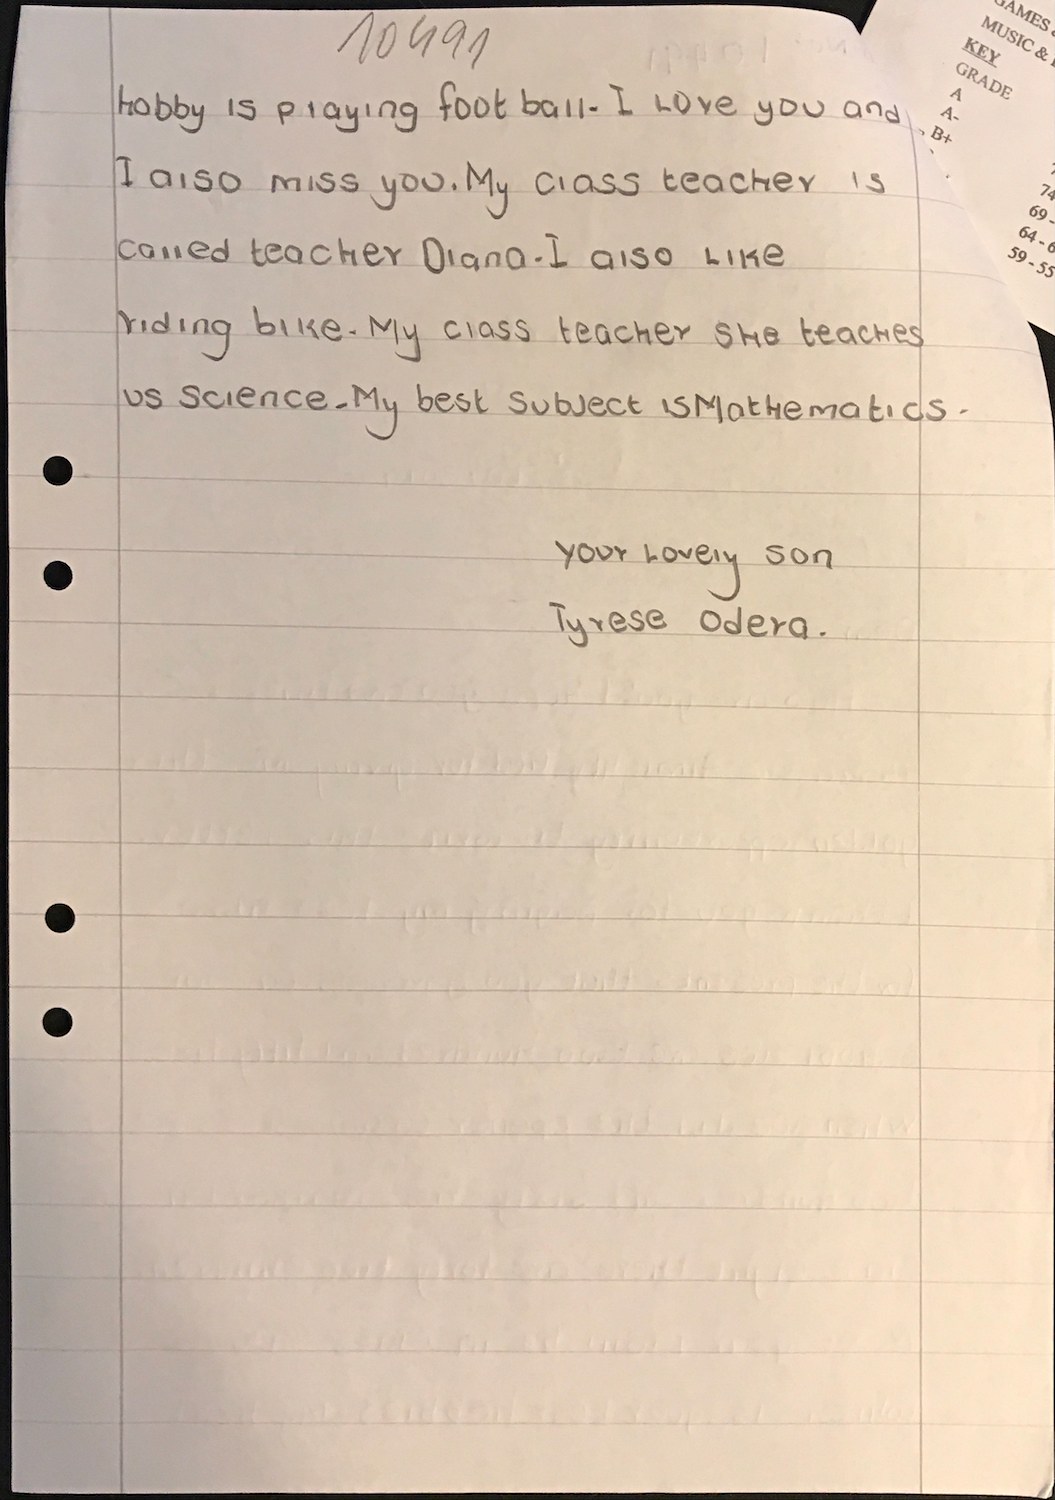 10491
hobby is playing foot ball. I Love you and
I also miss you. My class teacher is
called teacher Diana. I also Like
riding bike. My class teacher she teaches
us science. My best subject is Mathematics.
your Lovely son
Tyrese Odera.
GAMES &
MUSIC &
KEY
GRADE
A
A-
B+
74
69-
64-6
59-55